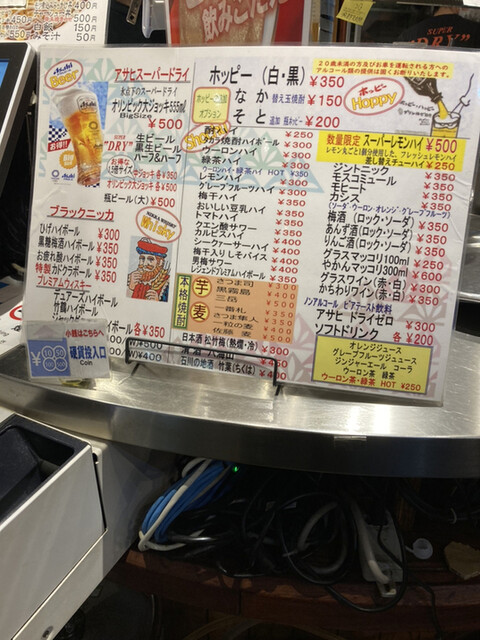 400円
150円
50円
Asahi
Beer
お得!!
アサヒスーパードライ
氷点下のスーパードライ
オリンピック大ジョッキ 555ml
BigSize
¥500
"DRY"
生ビール
黒生ビール
ハーフ&ハーフ
お得な
2サイズ
中ジョッキ 各¥350
オリンピック大ジョッキ 各¥500
瓶ビール(大) ¥500
ブラックニッカ
NIKKA WHISKY
Whisky
ひげハイボール ¥300
黒糖梅酒ハイボール ¥350
お疲れ酸ハイボール ¥350
特製カドクラボール ¥350
プレミアムウィスキー
デュアーズハイボール
竹鶴ハイボール
ハイボール 各¥350
小銭はこちらへ
硬貨投入口
Coin
ホッピー (白・黒) ¥350
なか 替え玉焼酎 ¥150
そと 追加 瓶ホッピー ¥200
オプション
ホッピー
Hoppy
20歳未満の方及びお車を運転される方への
アルコール類の提供は固くお断りいたします。
酎ハイ ¥250
タカラ焼酎ハイボール ¥300
ウーロンハイ ¥300
緑茶ハイ ¥300
ウーロンハイ・緑茶ハイ HOT ¥350
グレープフルーツハイ
レモンハイ
梅干ハイ
おいしい豆乳ハイ
トマトハイ
クエン酸サワー
シークァーサーハイ
梅干入りしそバイス
男梅サワー
レジェンドプレミアムハイボール
本格焼酎
芋
さつま司 ¥300
黒霧島
三岳
麦
一番札
さつま隼人
一粒の麦
佐藤 麦
日本酒 松竹梅(熱燗・冷)
石川の地酒 竹葉(ちくは) ¥450
数量限定 スーパーレモンハイ ¥500
レモン丸ごと1個分使用した、フレッシュレモンハイ
差し替えチューハイ ¥250
ジントニック ¥350
モスコミュール ¥350
モヒート ¥350
カシス ¥350
(ソーダ・ウーロン・オレンジ・グレープフルーツ)
梅酒 (ロック・ソーダ) ¥350
あんず酒(ロック・ソーダ) ¥350
りんご酒(ロック・ソーダ) ¥350
グラスマッコリ100ml ¥250
やかんマッコリ300ml ¥600
グラスワイン(赤・白) ¥300
かちわりワイン(赤・白) ¥350
ノンアルコール ビアテースト飲料
アサヒ ドライゼロ ¥300
ソフトドリンク 各¥200
オレンジジュース
グレープフルーツジュース
ジンジャーエール コーラ
ウーロン茶 緑茶
ウーロン茶・緑茶 HOT ¥250